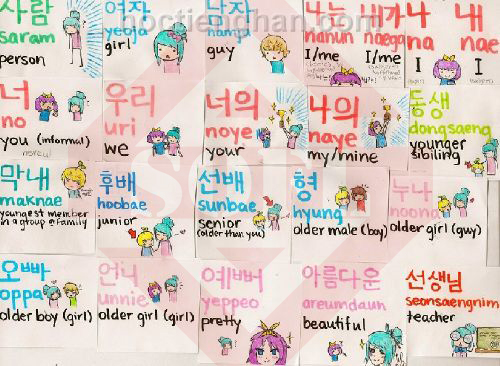 hoctienghan.com
사람
saram
person
여자
yeoja
girl
남자
namja
guy
나는
nanun
I/me
내가
naega
I/me
나
na
I
내
nae
I
너
no
you (informal)
우리
uri
we
너의
noye
your
나의
naye
my/mine
동생
dongsaeng
younger
sibiling
막내
maknae
youngest member
in a group & family
후배
hoobae
junior
선배
sunbae
senior
(older than you)
형
hyung
older male (boy)
누나
noona
older girl (guy)
오빠
oppa
older boy (girl)
언니
unnie
older girl (girl)
예뻐
yeppeo
pretty
아름다운
areumdaun
beautiful
선생님
seonsaengnim
teacher